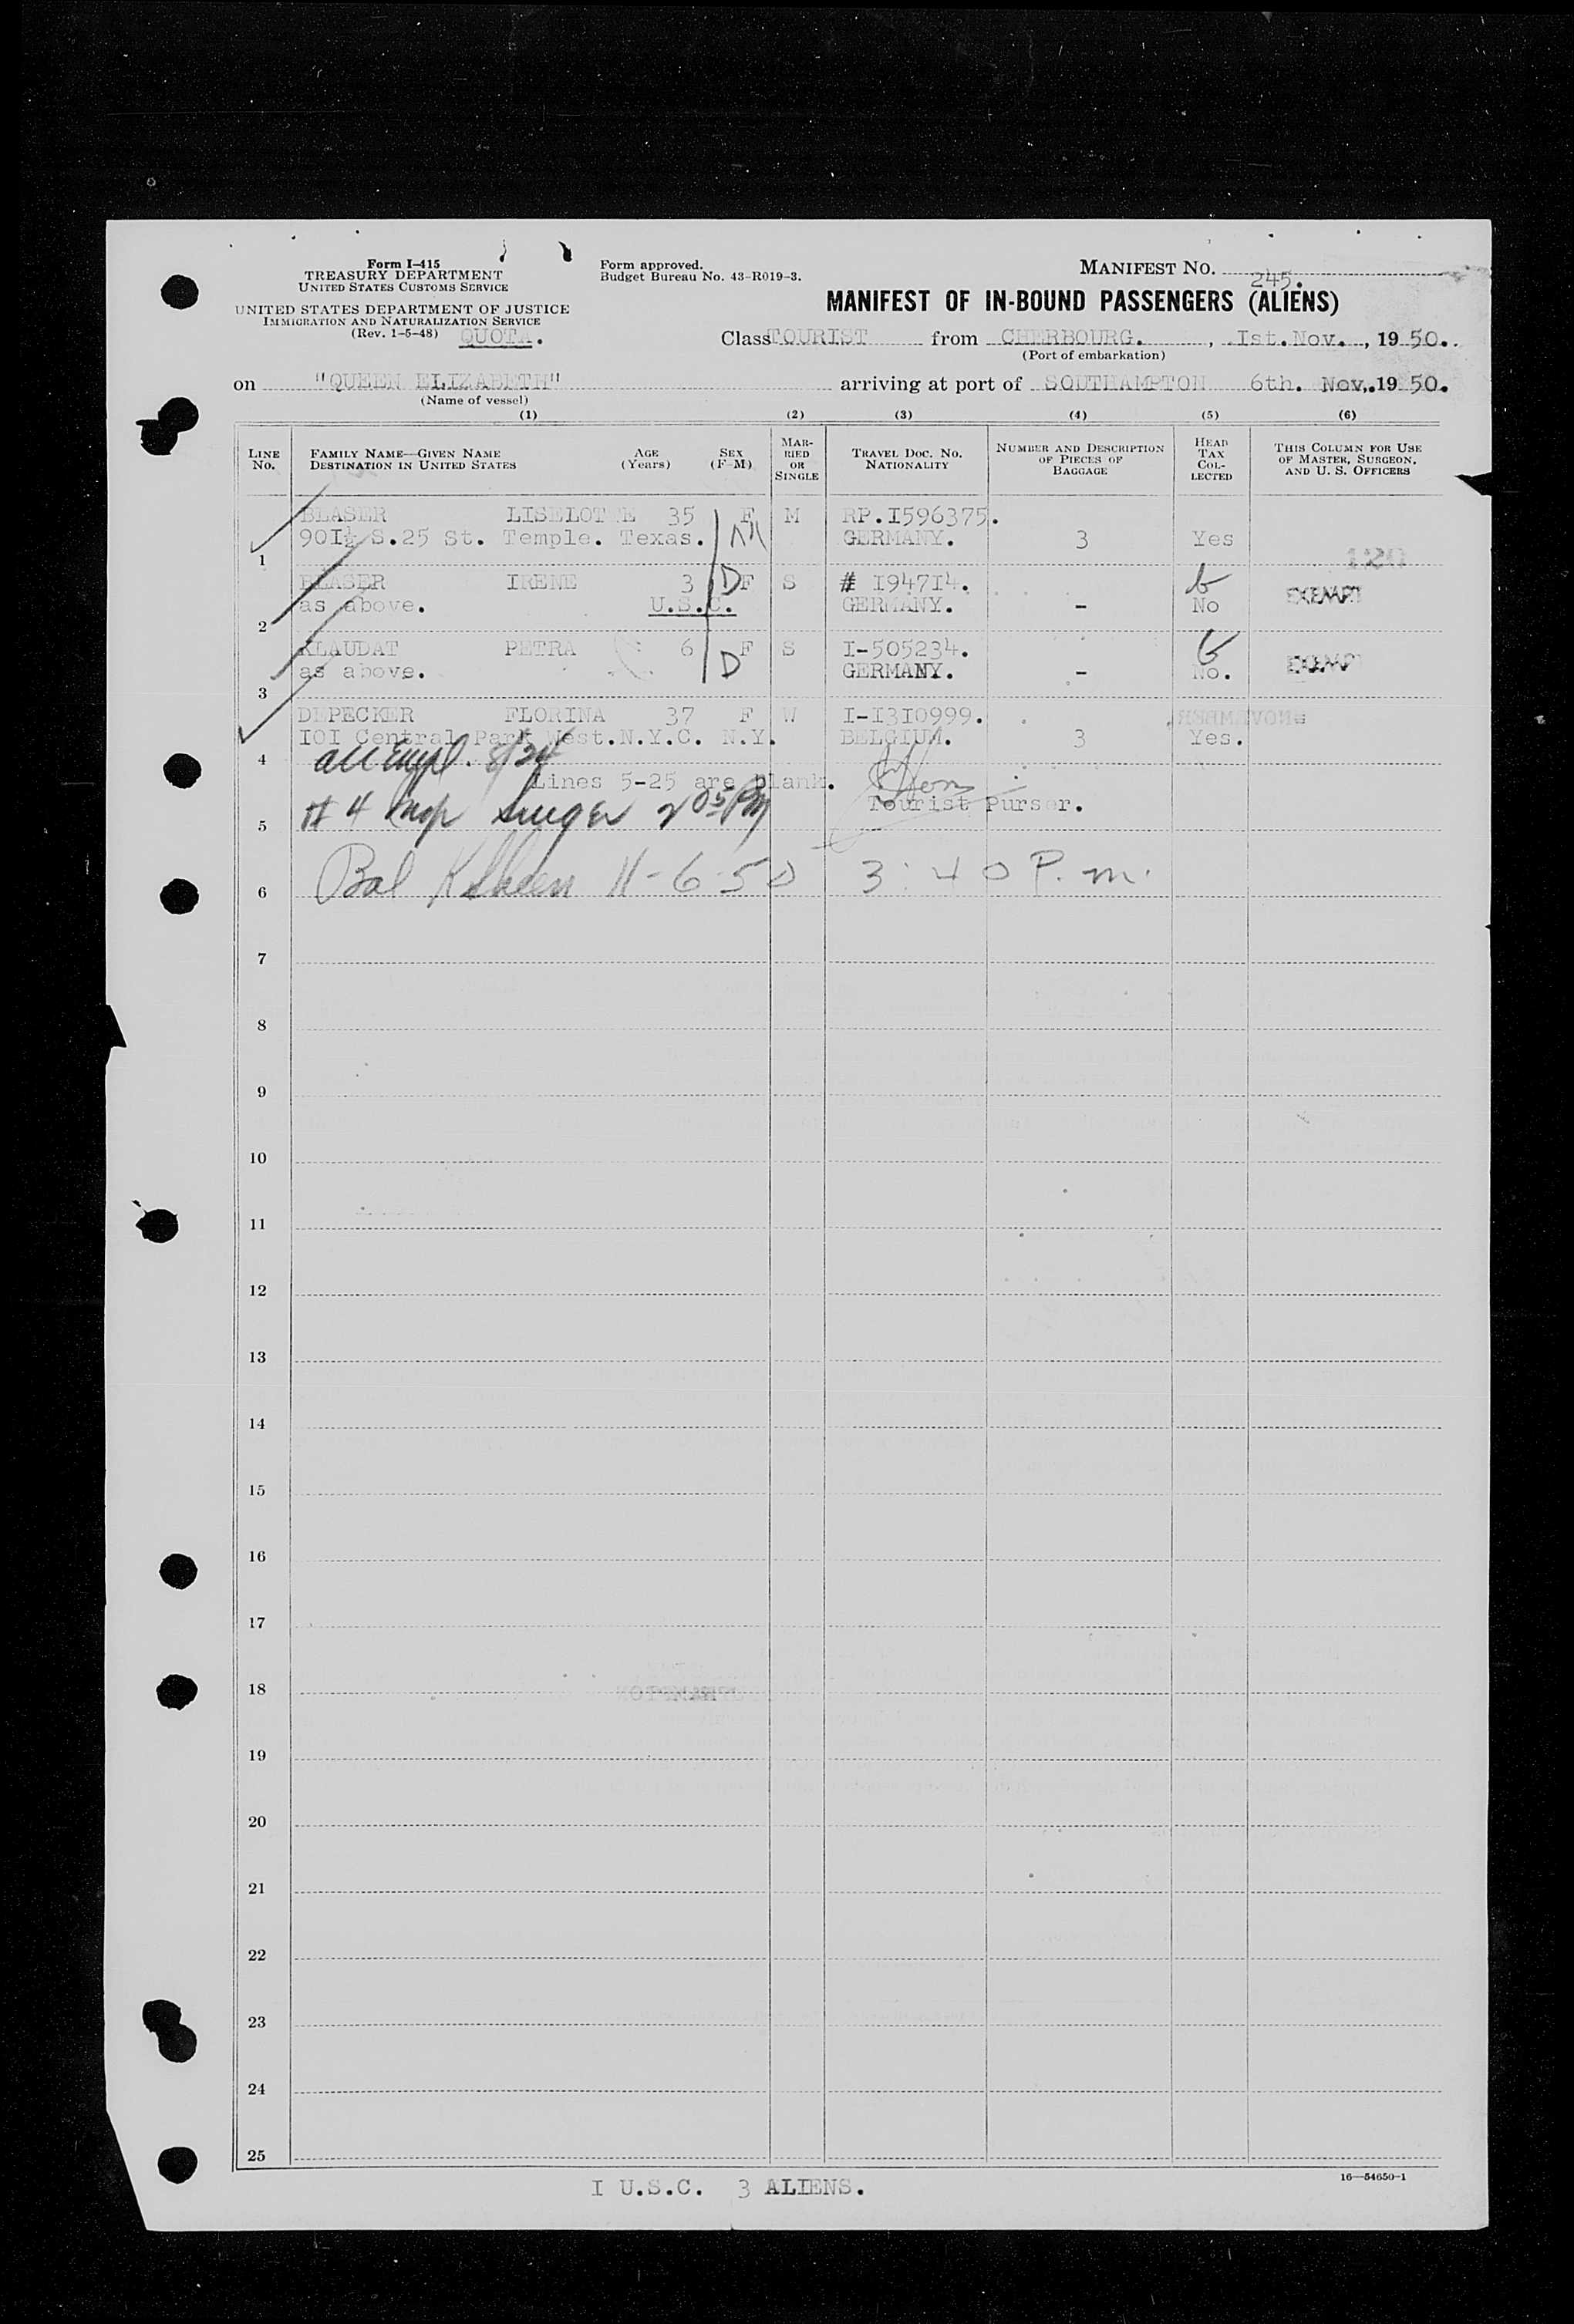 Form I-415
TREASURY DEPARTMENT
UNITED STATES CUSTOMS SERVICE
UNITED STATES DEPARTMENT OF JUSTICE
IMMIGRATION AND NATURALIZATION SERVICE
(Rev. 1-5-48) QUOTA.
Form approved.
Budget Bureau No. 43-R019-3.
MANIFEST NO. 245.
MANIFEST OF IN-BOUND PASSENGERS (ALIENS)
Class TOURIST from CHERBOURG. , Ist. Nov. , 19 50.
(Port of embarkation)
on "QUEEN ELIZABETH" arriving at port of SOUTHAMPTON 6th. Nov. 19 50.
(Name of vessel)
(1) (2) (3) (4) (5) (6)
LINE No. FAMILY NAME—GIVEN NAME DESTINATION IN UNITED STATES AGE (Years) SEX (F-M) MARRIED OR SINGLE TRAVEL DOC. NO. NATIONALITY NUMBER AND DESCRIPTION OF PIECES OF BAGGAGE HEAD TAX COLLECTED THIS COLUMN FOR USE OF MASTER, SURGEON, AND U. S. OFFICERS
BLASER LISELOTTE 35 F M RP.I596375.
90I½ S.25 St. Temple. Texas. M GERMANY. 3 Yes
1
BLASER IRENE 3 D F S # I94714.
as above. U.S.C. GERMANY. - No EXEMPT
2
KLAUDAT PETRA 6 F S I-505234.
as above. D GERMANY. - No. EXEMPT
3
DEPECKER FLORINA 37 F W I-I3I0999.
IOI Central Park West.N.Y.C. N.Y. BELGIUM. 3 Yes.
4
all Empl. 8/24
Lines 5-25 are blank.
Tourist Purser.
# 4 Insp Singer 2 05 PM
5
Bal 11-6-50 3:40 P.m.
6
7
8
9
10
11
12
13
14
15
16
17
18
19
20
21
22
23
24
25
16—54650-1
I U.S.C. 3 ALIENS.